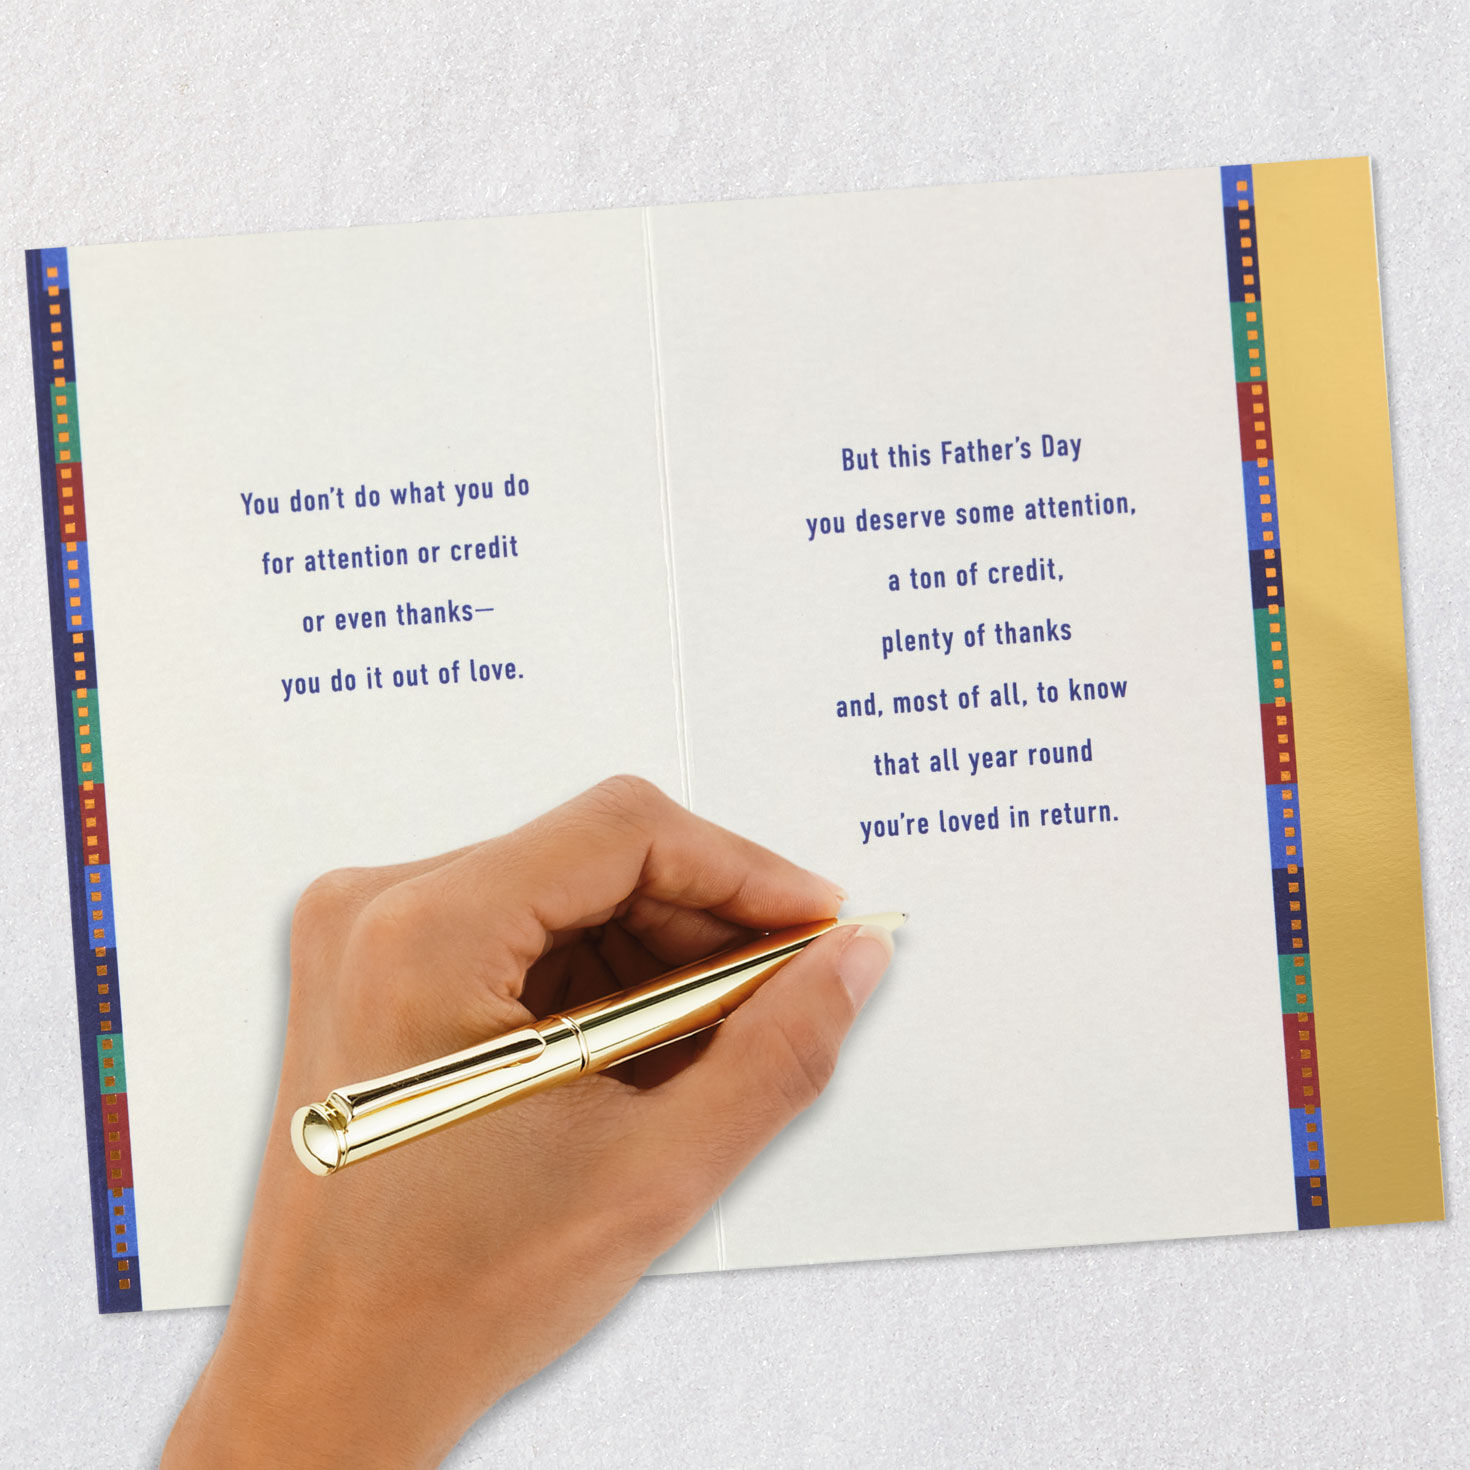 You don't do what you do
for attention or credit
or even thanks—
you do it out of love.
But this Father's Day
you deserve some attention,
a ton of credit,
plenty of thanks
and, most of all, to know
that all year round
you're loved in return.